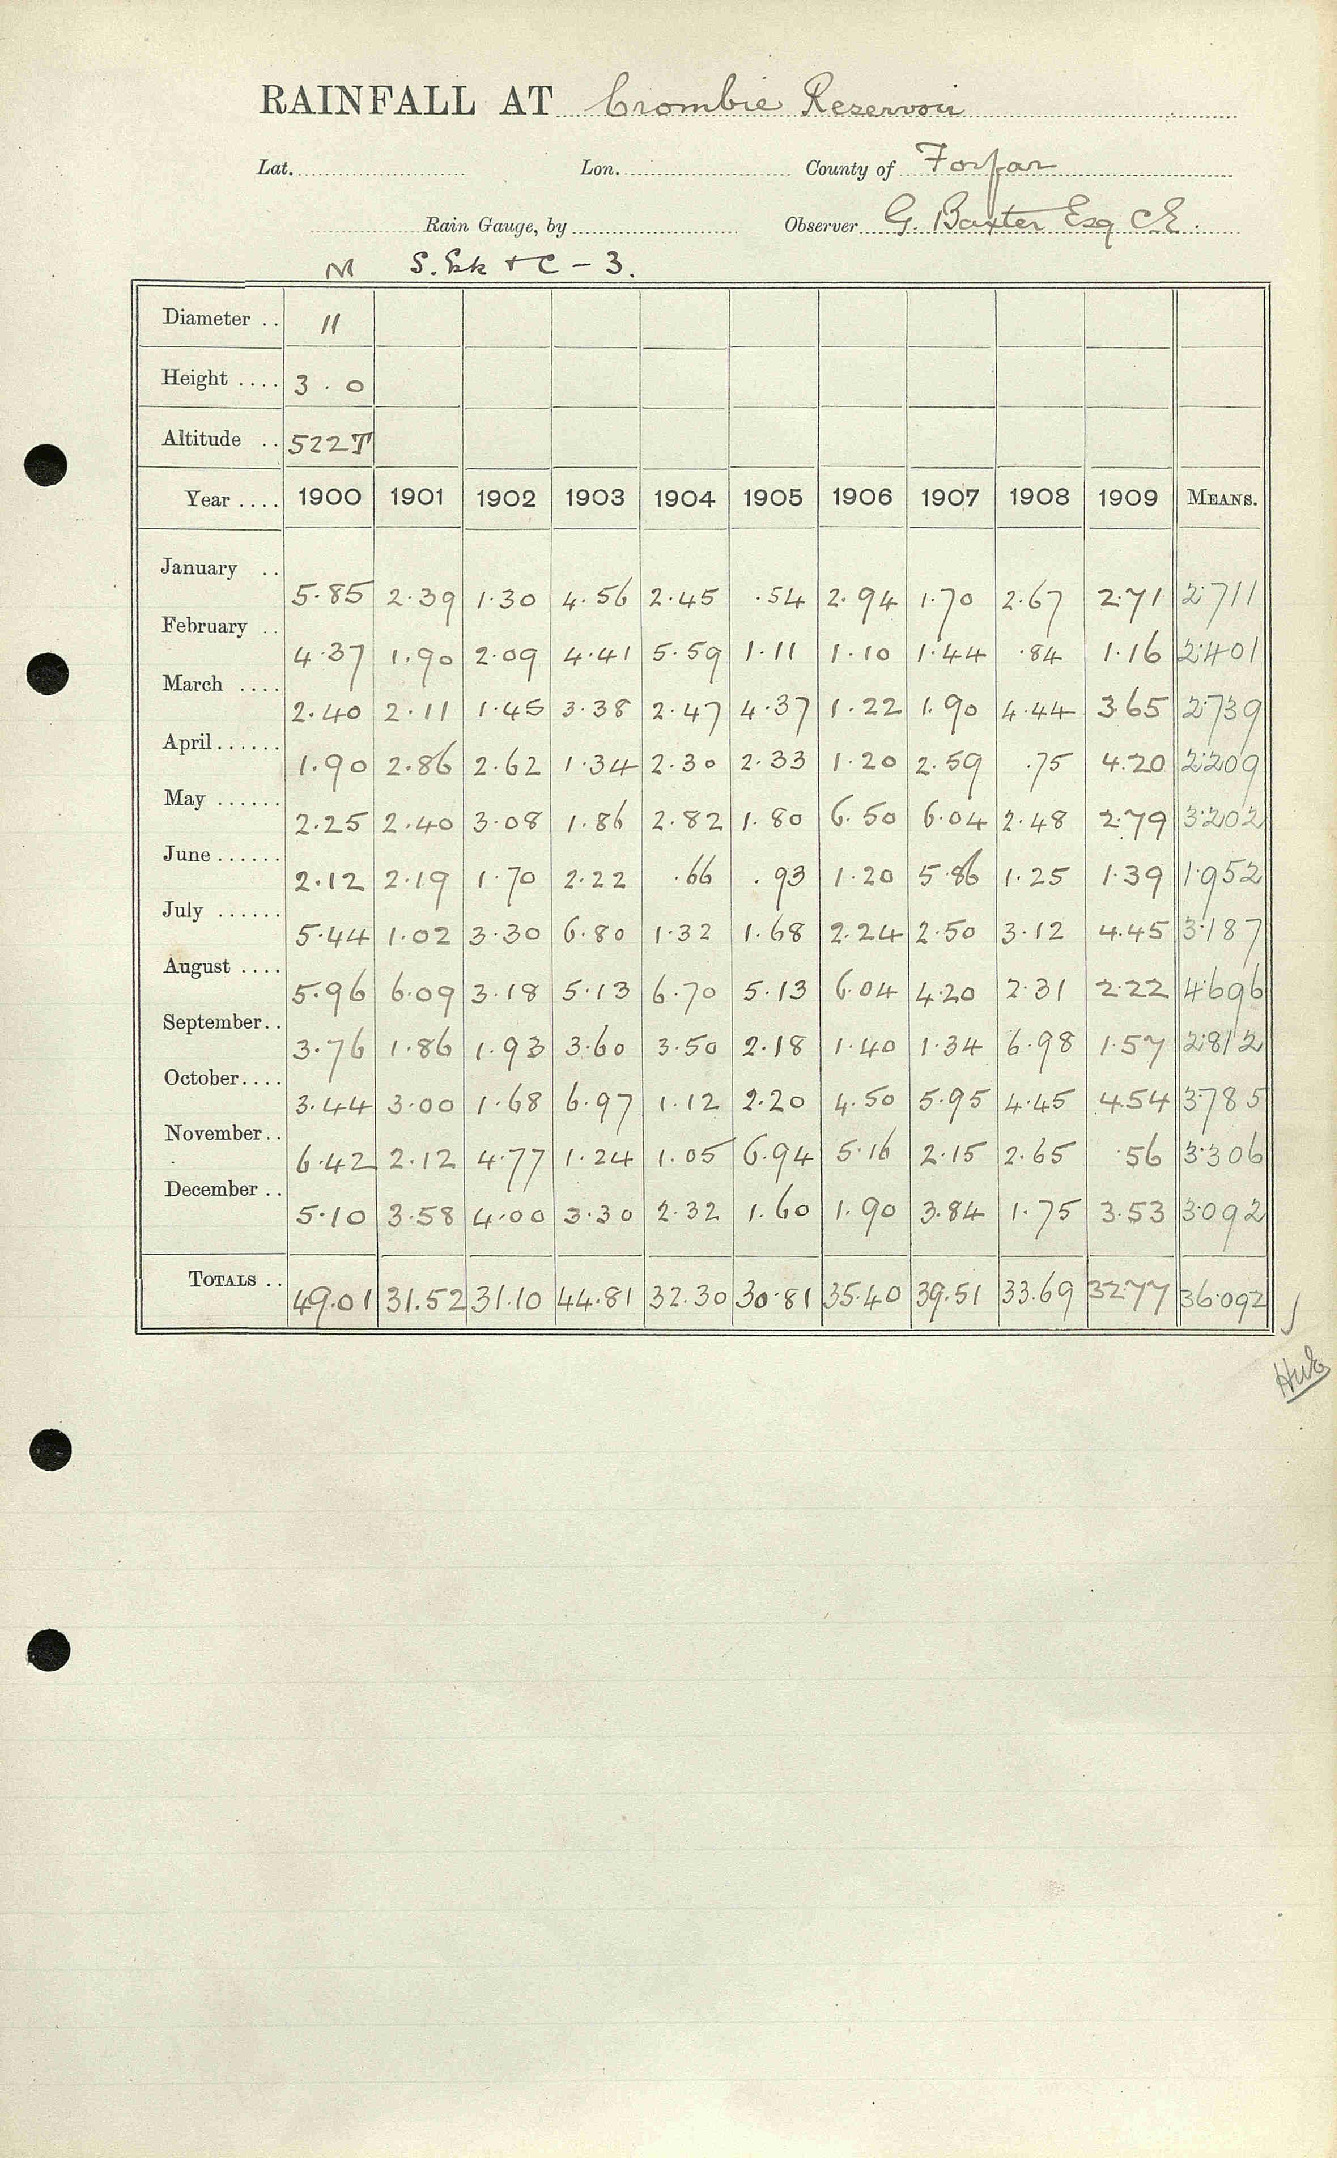 RAINFALL AT Crombie Reservoir
Lat. Lon. County of Forfar
Rain Gauge, by Observer G. Baxter Esq CE.
M S. Esk + C - 3.
Diameter .. 11
Height .... 3 . 0
Altitude .. 522T
Year .... 1900 1901 1902 1903 1904 1905 1906 1907 1908 1909 MEANS.
January .. 5.85 2.39 1.30 4.56 2.45 .54 2.94 1.70 2.67 2.71 2.711
February .. 4.37 1.90 2.09 4.41 5.59 1.11 1.10 1.44 .84 1.16 2.401
March .... 2.40 2.11 1.45 3.38 2.47 4.37 1.22 1.90 4.44 3.65 2.739
April ...... 1.90 2.86 2.62 1.34 2.30 2.33 1.20 2.59 .75 4.20 2.209
May ...... 2.25 2.40 3.08 1.86 2.82 1.80 6.50 6.04 2.48 2.79 3.202
June ...... 2.12 2.19 1.70 2.22 .66 .93 1.20 5.86 1.25 1.39 1.952
July ...... 5.44 1.02 3.30 6.80 1.32 1.68 2.24 2.50 3.12 4.45 3.187
August .... 5.96 6.09 3.18 5.13 6.70 5.13 6.04 4.20 2.31 2.22 4.696
September.. 3.76 1.86 1.93 3.60 3.50 2.18 1.40 1.34 6.98 1.57 2.812
October.... 3.44 3.00 1.68 6.97 1.12 2.20 4.50 5.95 4.45 4.54 3.785
November.. 6.42 2.12 4.77 1.24 1.05 6.94 5.16 2.15 2.65 .56 3.306
December .. 5.10 3.58 4.00 3.30 2.32 1.60 1.90 3.84 1.75 3.53 3.092
TOTALS .. 49.01 31.52 31.10 44.81 32.30 30.81 35.40 39.51 33.69 32.77 36.092